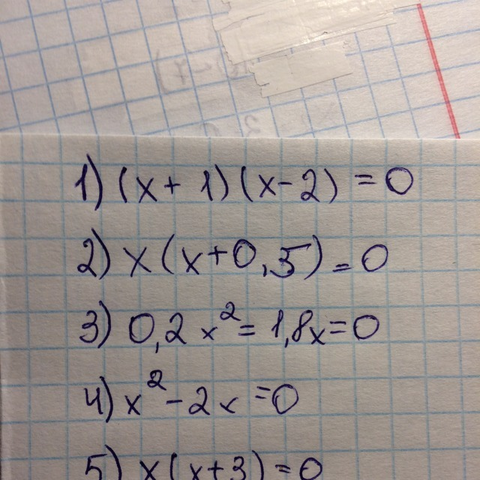 1) (x+1)(x-2)=0
2) x(x+0,5)=0
3) 0,2x²=1,8x=0
4) x²-2x=0
5) x(x+3)=0